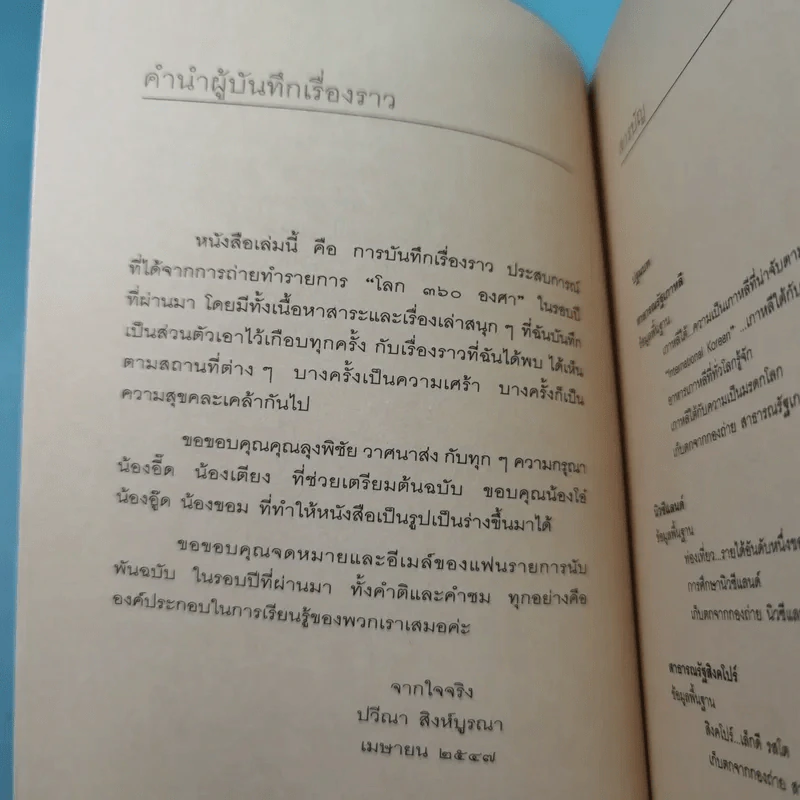 คำนำผู้บันทึกเรื่องราว
หนังสือเล่มนี้ คือ การบันทึกเรื่องราว ประสบการณ์
ที่ได้จากการถ่ายทำรายการ "โลก ๓๖๐ องศา" ในรอบปี
ที่ผ่านมา โดยมีทั้งเนื้อหาสาระและเรื่องเล่าสนุก ๆ ที่ฉันบันทึก
เป็นส่วนตัวเอาไว้เกือบทุกครั้ง กับเรื่องราวที่ฉันได้พบ ได้เห็น
ตามสถานที่ต่าง ๆ บางครั้งเป็นความเศร้า บางครั้งก็เป็น
ความสุขคละเคล้ากันไป
ขอขอบคุณคุณลุงพิชัย วาศนาส่ง กับทุก ๆ ความกรุณา
น้องอี๊ด น้องเตียง ที่ช่วยเตรียมต้นฉบับ ขอบคุณน้องโอ๋
น้องอู๊ด น้องขอม ที่ทำให้หนังสือเป็นรูปเป็นร่างขึ้นมาได้
ขอขอบคุณจดหมายและอีเมล์ของแฟนรายการนับ
พันฉบับ ในรอบปีที่ผ่านมา ทั้งคำติและคำชม ทุกอย่างคือ
องค์ประกอบในการเรียนรู้ของพวกเราเสมอค่ะ
จากใจจริง
ปวีณา สิงห์บูรณา
เมษายน ๒๕๔๗
สารบัญ
สาธารณรัฐเกาหลี
ข้อมูลพื้นฐาน
เกาหลีใต้...ความเป็นเกาหลีที่น่าจับตาม
"International Korean"...เกาหลีใต้กับ
อาหารเกาหลีที่ทั่วโลกรู้จัก
เกาหลีใต้กับความเป็นมรดกโลก
เก็บตกจากกองถ่าย สาธารณรัฐเกา
นิวซีแลนด์
ข้อมูลพื้นฐาน
ท่องเที่ยว...รายได้อันดับหนึ่งขอ
การศึกษานิวซีแลนด์
เก็บตกจากกองถ่าย นิวซีแล
สาธารณรัฐสิงคโปร์
ข้อมูลพื้นฐาน
สิงคโปร์...เล็กดี รสโต
เก็บตกจากกองถ่าย ส